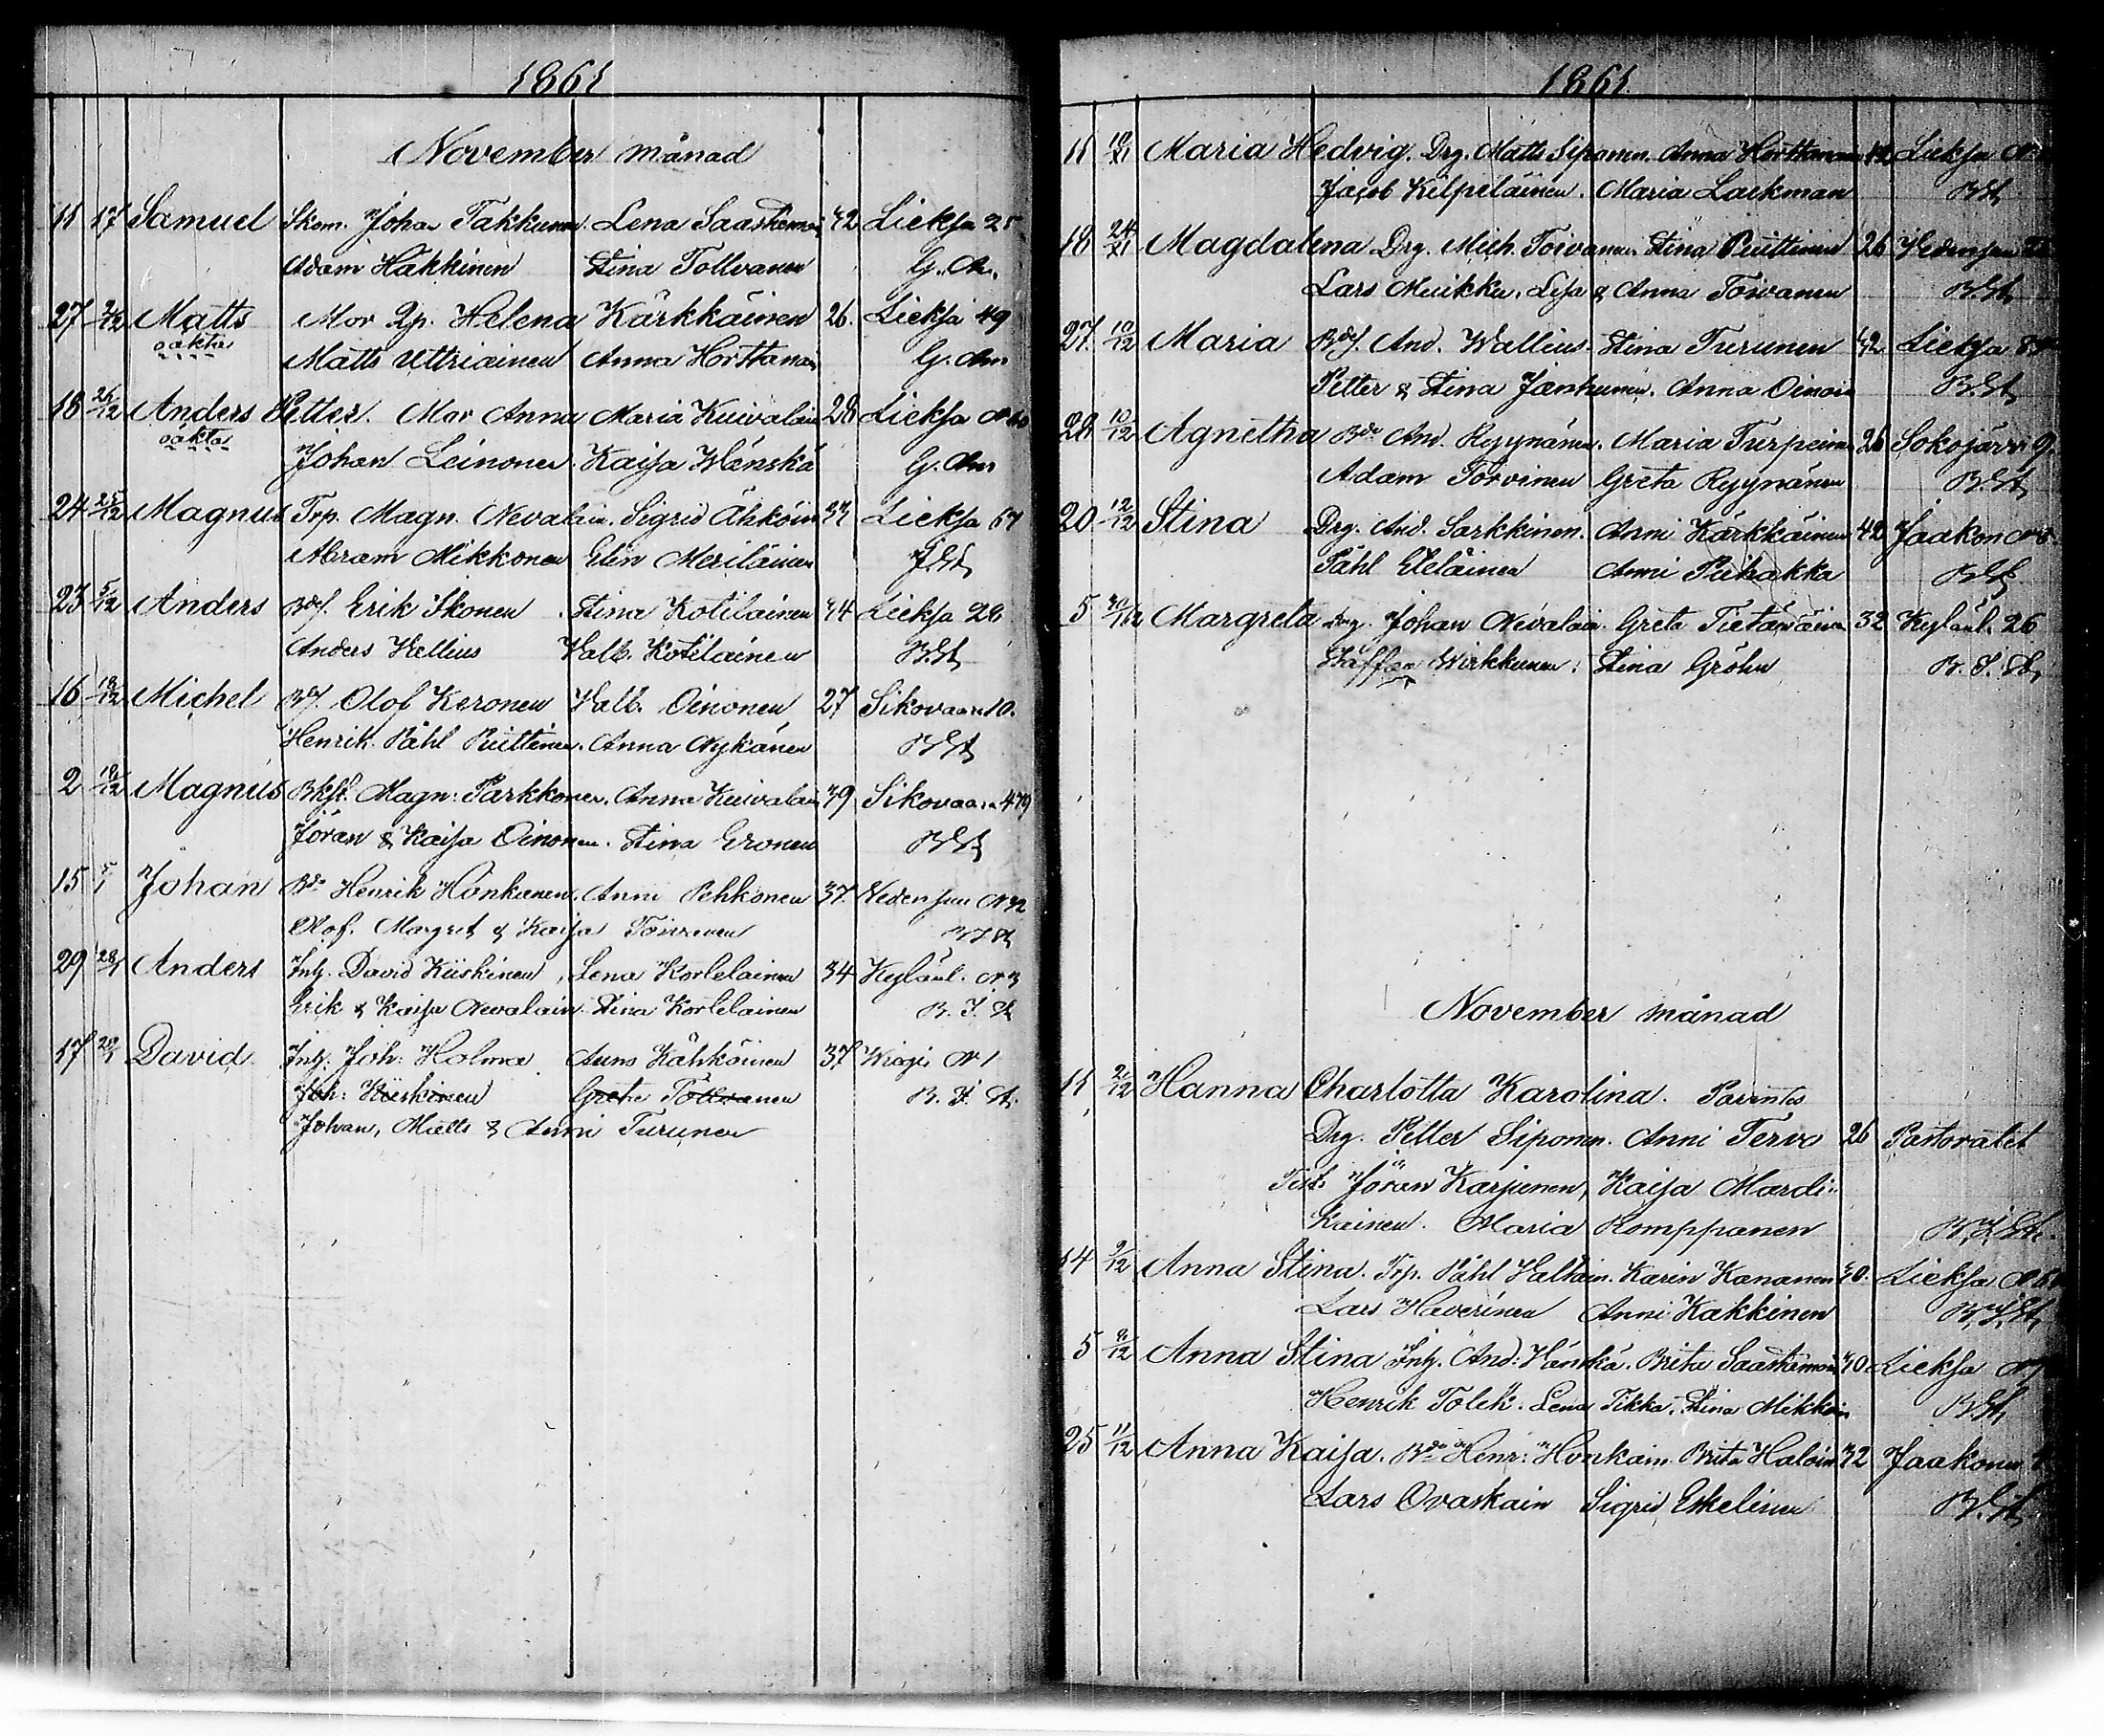 1861
November månad
11 17 Samuel Skom. Johan Takkunen. Lena Saastamoi 42 Lieksa 25
Adam Häkkinen Stina Tollvanen G. Am.
27 2/12 Matts Mor Qp. Helena Kärkkäinen 26. Lieksa 49
oäkta Matts Uttriainen Anna Horttanai G. Am
18 26/12 Anders Petter. Mor Anna Maria Kuivalain 28 Lieksa
oäkta Johan Leinonen. Kaisa Wänskä G. Am
24 25/12 Magnus Trp. Magn. Nevalain. Sigrid Ähköin Lieksa 67
Abram Mikkonen Elin Meriläinen
23 5/12 Anders Erik Ikonen. Stina Kotilainen 44 Lieksa 28
Anders Kellius Valb. Kotilainen B St
16 Michel Olof Keronen Valb. Oinonen 27 Sikovaara 10.
Henrik. Påhl Puittinen. Anna Nykänen B St
2 Magnus Magn: Parkkonen. Anna Kuivalain 39 Sikovaara
Jöran & Kaisa Oinonen. Stina Eronen B St
15 5/1 Johan Bde Henrik Honkanen. Anni Pehkonen 37. Nedensju N 32
Olof. Margret & Kaisa Toivanen
29 28/1 Anders Inh. David Kiiskinen, Lena Kortelainen 34 Kyläul. N 3
Erik & Kaisa Nevalain. Stina Kortelainen B. F. St
17 29/1 David. Inh. Joh: Holma Anna Kähköinen 37 Wieji N 1
Joh: Kiiskinen Greta Tollvanen B. F. St.
Johan, Matts & Anni Turunen
1861.
11 Maria Hedvig. Drg. Matts Siponen. Anna Horttanain Lieksa
Jacob Kilpeläinen. Maria Lackman B St
18 24/11 Magdalena Drg. Mich. Toivanen. Stina Puittinen 26 Nedensju
Lars Muikku. Lisa & Anna Toivanen B. St
27. 10/12 Maria And. Wallius. Stina Turunen 42 Lieksa
Petter & Stina Janhunen. Anna Oinoin B. St
28 10/12 Agnetha Bde And. Ryynänen. Maria Turpeinen 26 Sokojärvi 9.
Adam Torvinen Greta Ryynänen B. St
20. 12/12 Stina Drg. And. Sarkkinen. Anni Kärkkäinen 42 Jaakon
Påhl Eteläinen Anni Piihakka B St
5 30/12 Margreta Drg. Johan Nevalain. Greta Tietäväin 32 Kyläul. 26
Staffan Wirkkunen. Stina Gröhn B. F. St
November månad
11 21/12 Hanna Charlotta Karolina. Parentes
Drg. Petter Siponen. Anni Tervo 26 Pastoratet
Test. Jöran Karjunen, Kaisa Mardi-
kainen. Maria Romppanen
14 9/12 Anna Stina. Trp. Påhl Valtain. Karin Kananen 40. Lieksa
Lars Haverinen Anni Kakkinen
5 9/12 Anna Stina Inh. And: Vänskä. Brita Saastamoin 40 Lieksa
Henrik Tolck. Lena Tikka. Stina Mikkoin B St
25 11/12 Anna Kaisa. Bde Henr: Honkain. Brita Haloin 32 Jaakon
Lars Ovaskain Sigrid Eskelinen B. St